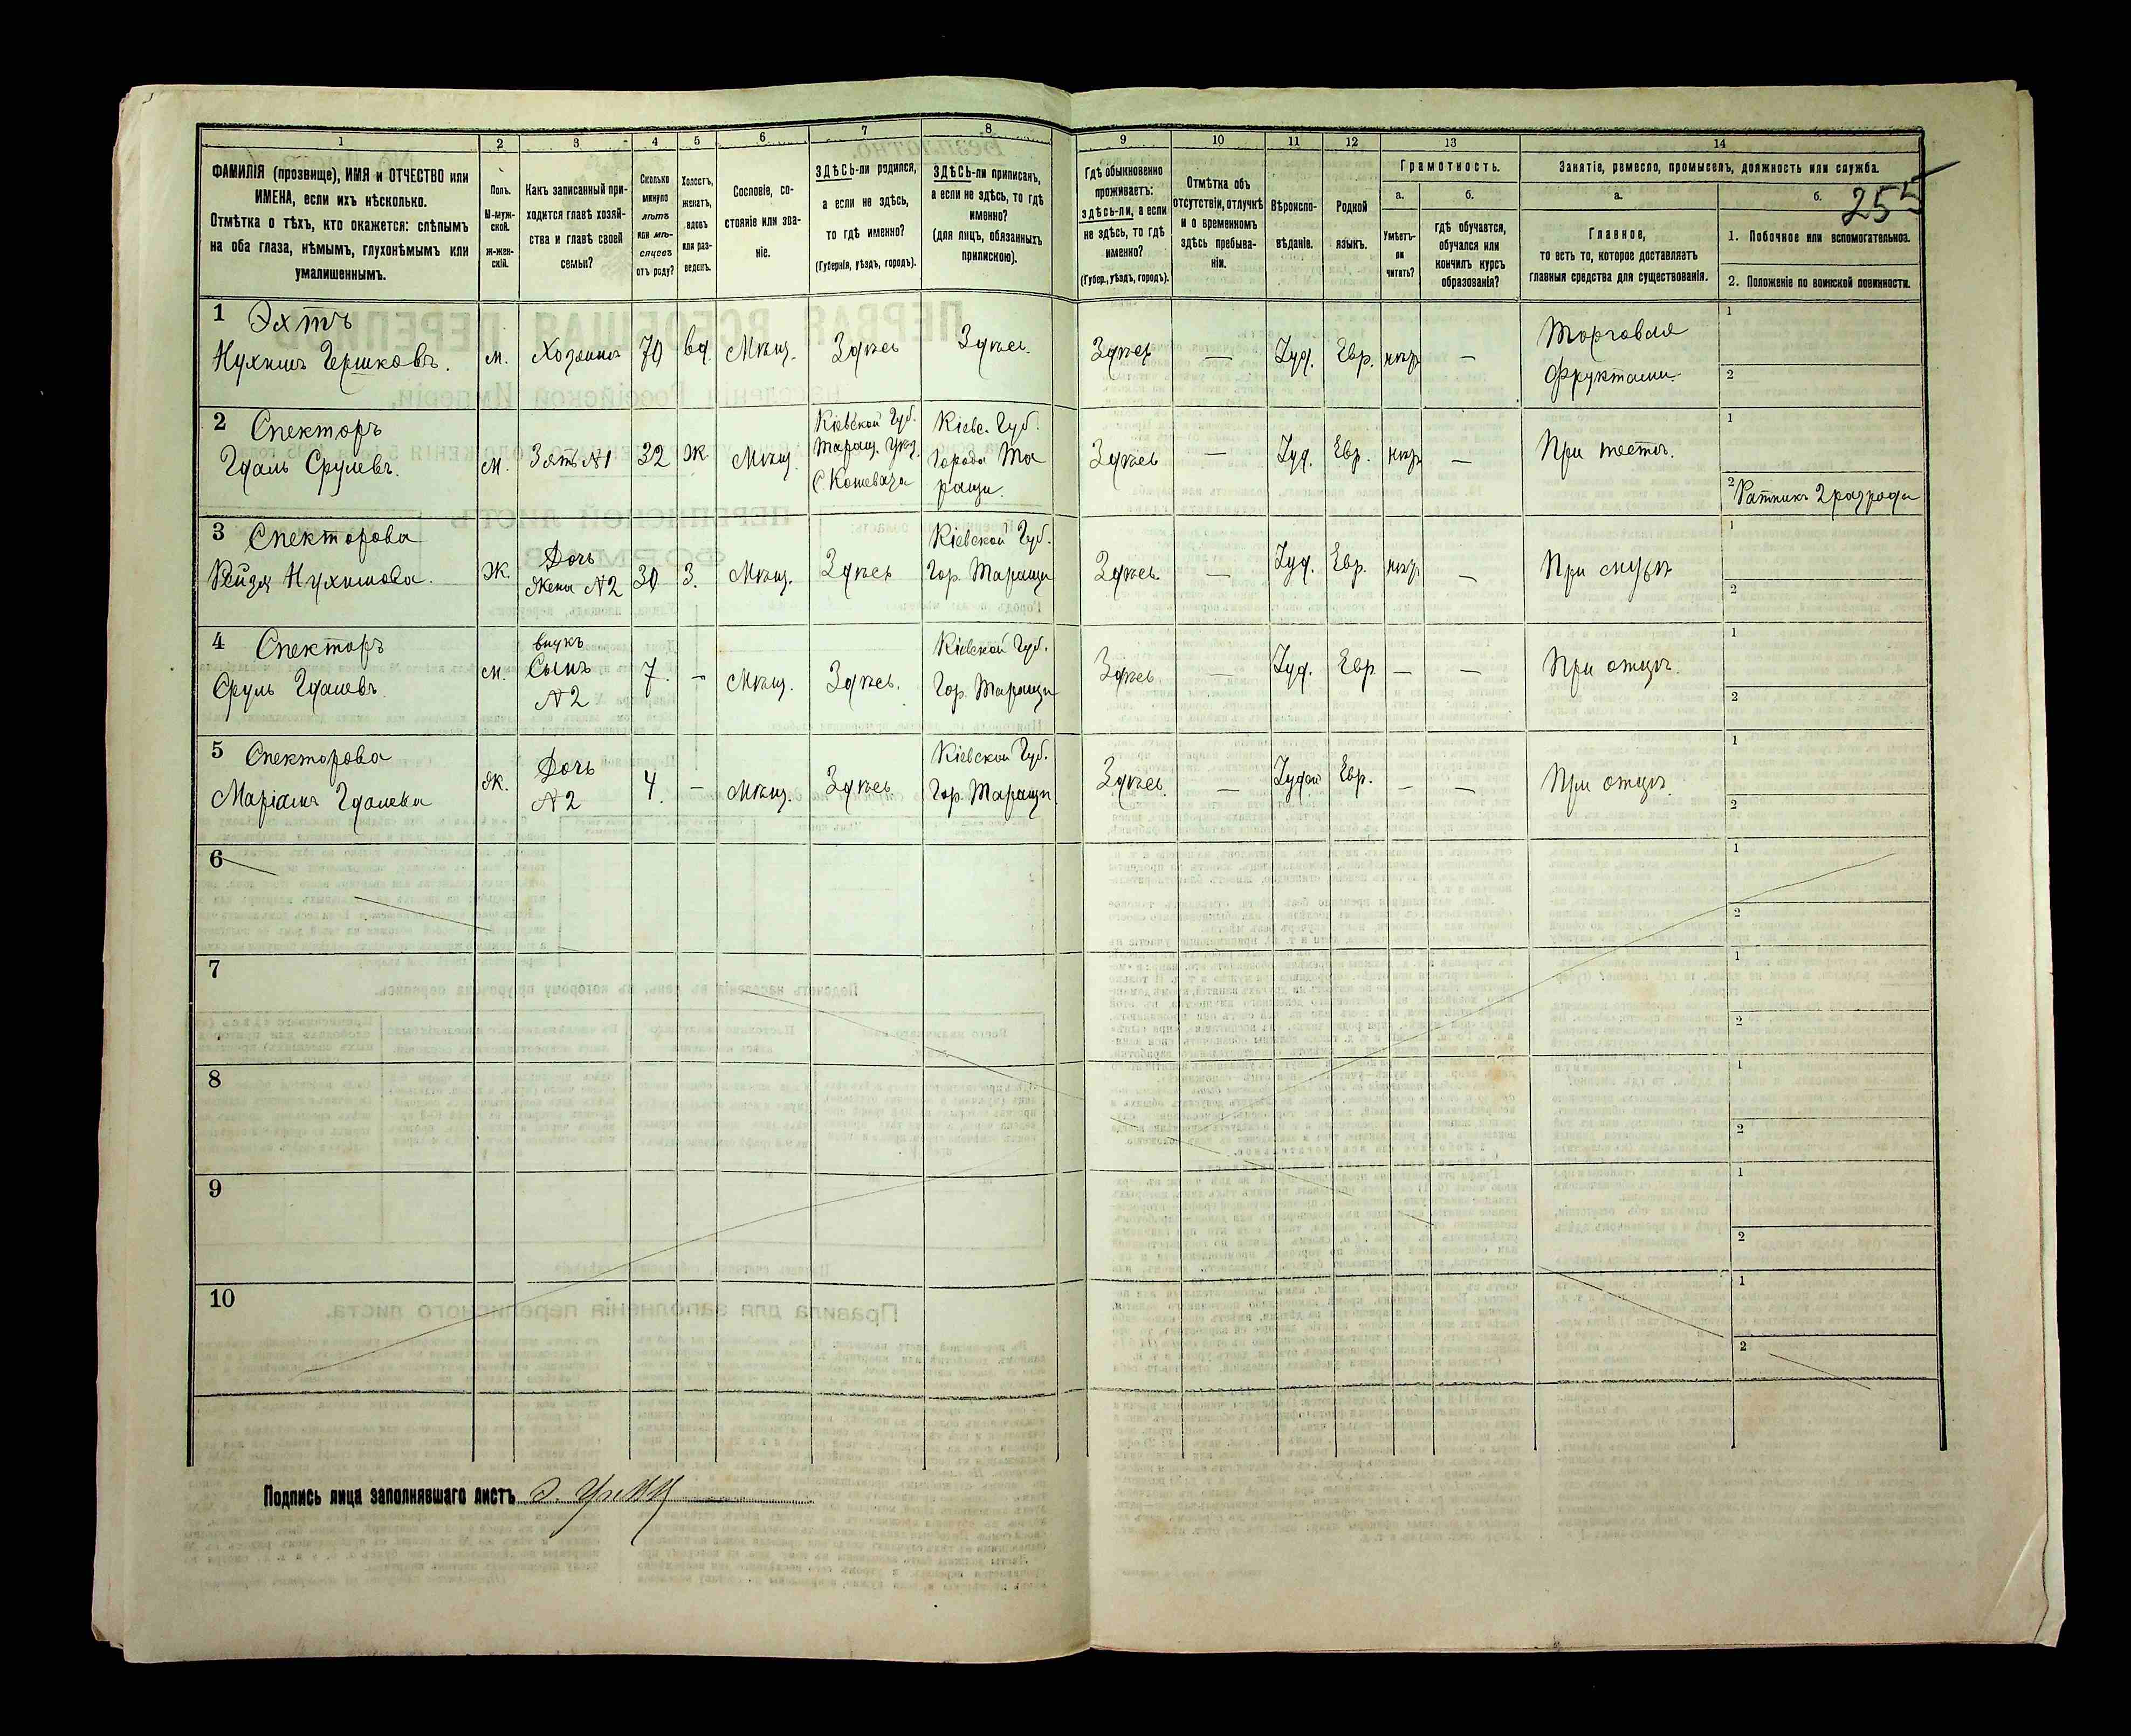 1
2
3
4
5
6
7
8
ФАМИЛІЯ (прозвище), ИМЯ и ОТЧЕСТВО или
ИМЕНА, если ихъ нѣсколько.
Отмѣтка о тѣхъ, кто окажется: слѣпымъ
на оба глаза, нѣмымъ, глухонѣмымъ или
умалишеннымъ.
Полъ.
М-муж-
ской.
Ж-жен-
скій.
Какъ записанный при-
ходится главѣ хозяй-
ства и главѣ своей
семьи?
Сколько
минуло
лѣтъ
или мѣ-
сяцевъ
отъ роду?
Холостъ,
женатъ,
вдовъ
или раз-
веденъ.
Сословіе, со-
стояніе или зва-
ніе.
ЗДѢСЬ-ли родился,
а если не здѣсь,
то гдѣ именно?
(Губернія, уѣздъ, городъ).
ЗДѢСЬ-ли приписанъ,
а если не здѣсь, то гдѣ
именно?
(для лицъ, обязанныхъ
припискою).
9
10
11
12
13
14
Гдѣ обыкновенно
проживаетъ:
здѣсь-ли, а если
не здѣсь, то гдѣ
именно?
(Губер., уѣздъ, городъ).
Отмѣтка объ
отсутствіи, отлучкѣ
и о временномъ
здѣсь пребыва-
ніи.
Вѣроиспо-
вѣданіе.
Родной
языкъ.
Грамотность.
а.
б.
Умѣетъ-
ли
читать?
гдѣ обучается,
обучался или
кончилъ курсъ
образованія?
Занятіе, ремесло, промыселъ, должность или служба.
а.
б.
255
Главное,
то есть то, которое доставляетъ
главныя средства для существованія.
1. Побочное или вспомогательное.
2. Положеніе по воинской повинности.
1 Эхтъ
Нухимъ Гершковъ.
м.
Хозяинъ
70
вд.
Мѣщ.
Здѣсь
Здѣсь.
Здѣсь
—
Іуд.
Евр.
нѣтъ
—
Торговля
фруктами.
1
2
2 Спекторъ
Гдаль Срулевъ.
м.
Зять №1
32
ж.
Мѣщ.
Кіевской Губ.
Таращ. Уѣзд.
С Кошевата
Кіевс. Губ.
Города Та
ращи.
Здѣсь
—
Іуд.
Евр.
нѣтъ
—
При тестѣ.
1
2 Ратникъ 2 разряда
3 Спекторова
Рейзя Нухимова.
Ж.
Дочь
Жена №2
30
З.
Мѣщ.
Здѣсь
Кіевской Губ.
Гор. Таращи
Здѣсь.
—
Іуд.
Евр.
нѣтъ
—
При мужѣ
1
2
4 Спекторъ
Сруль Гдалевъ
м.
внукъ
Сынъ
№2
7.
—
Мѣщ.
Здѣсь.
Кіевской Губ.
Гор. Таращи
Здѣсь
—
Іуд.
Евр
—
—
При отцѣ.
1
2
5 Спекторова
Маріама Гдалева
Ж.
Дочь
№2
4.
—
Мѣщ.
Здѣсь
Кіевской Губ.
Гор. Таращи.
Здѣсь.
—
Іудей
Евр.
—
—
При отцѣ.
1
2
6
1
2
7
1
2
8
1
2
9
1
2
10
1
2
Подпись лица заполнявшаго листъ